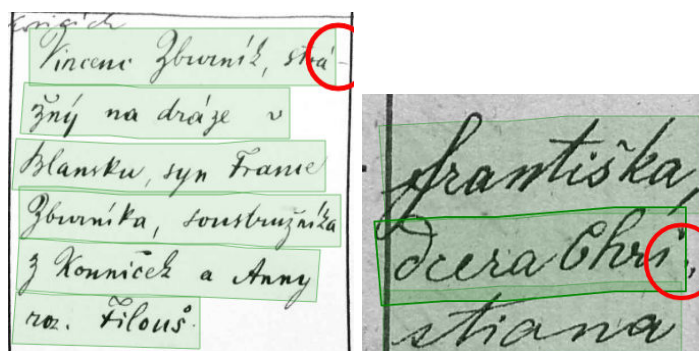 Vincenc Zburník, strá-
žný na dráze v
Blansku, syn France
Zburníka, soustružníka
z Kouniček a Anny
roz. Filouš.
františka,
dcera Chri-
stiana